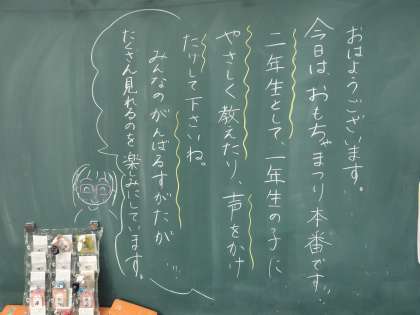 おはようございます。
今日は、おもちゃまつり本番です!!
二年生として、一年生の子に
やさしく教えたり、声をかけ
たりして下さいね。
みんなのがんばるすがたが
たくさん見れるのを楽しみにしています。